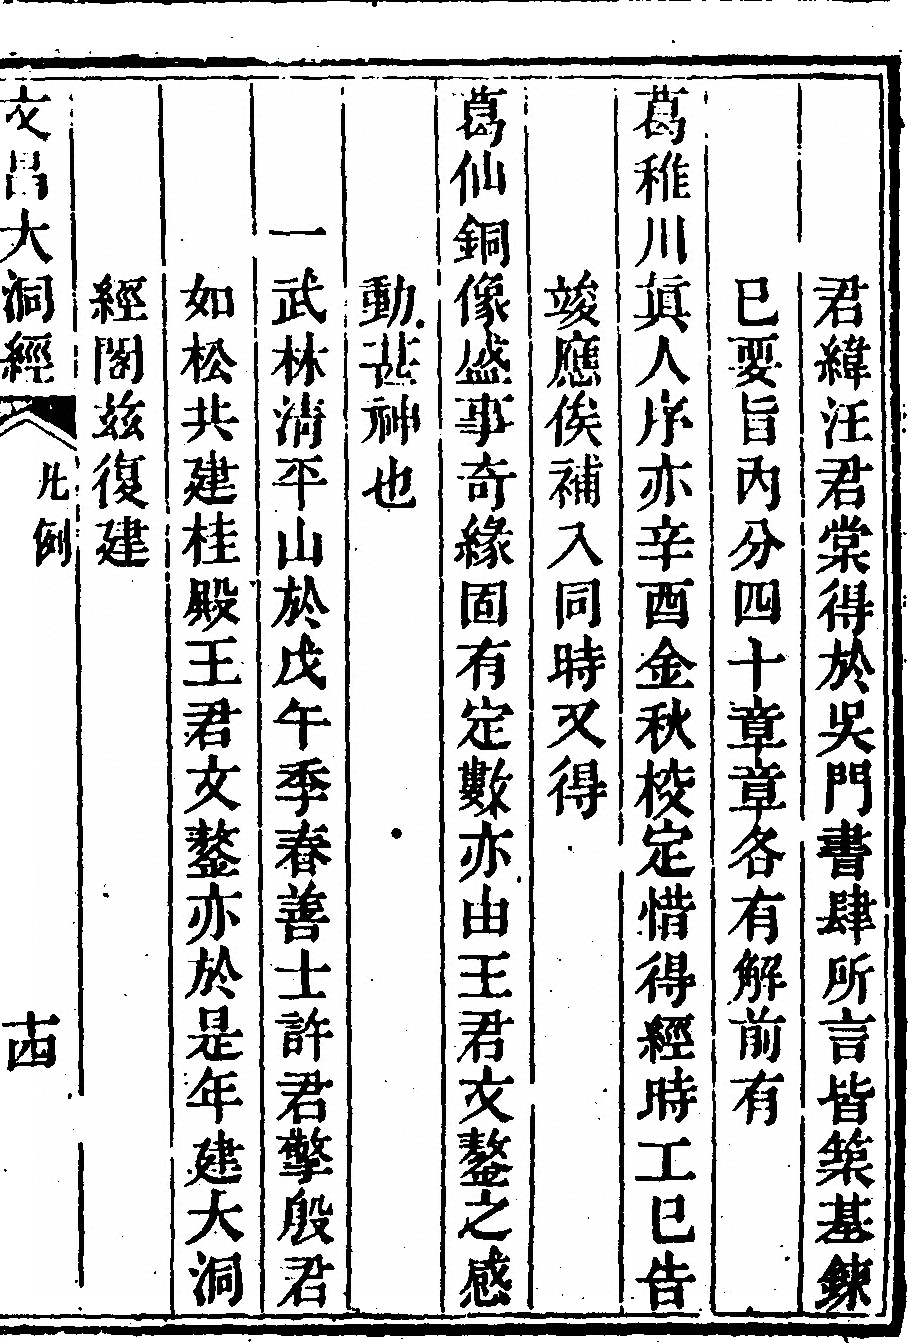 君緯汪君棠得於吳門書肆所言皆築基鍊
已要旨內分四十章章各有解前有
葛稚川眞人序亦辛酉金秋校定惜得經時工已告
竣應俟補入同時又得
葛仙銅像盛事奇緣固有定數亦由王君文鏊之感
動甚神也
一武林清平山於戊午季春善士許君擎殷君
如松共建桂殿王君文鏊亦於是年建大洞
經閣茲復建
文昌大洞經 凡例 十四